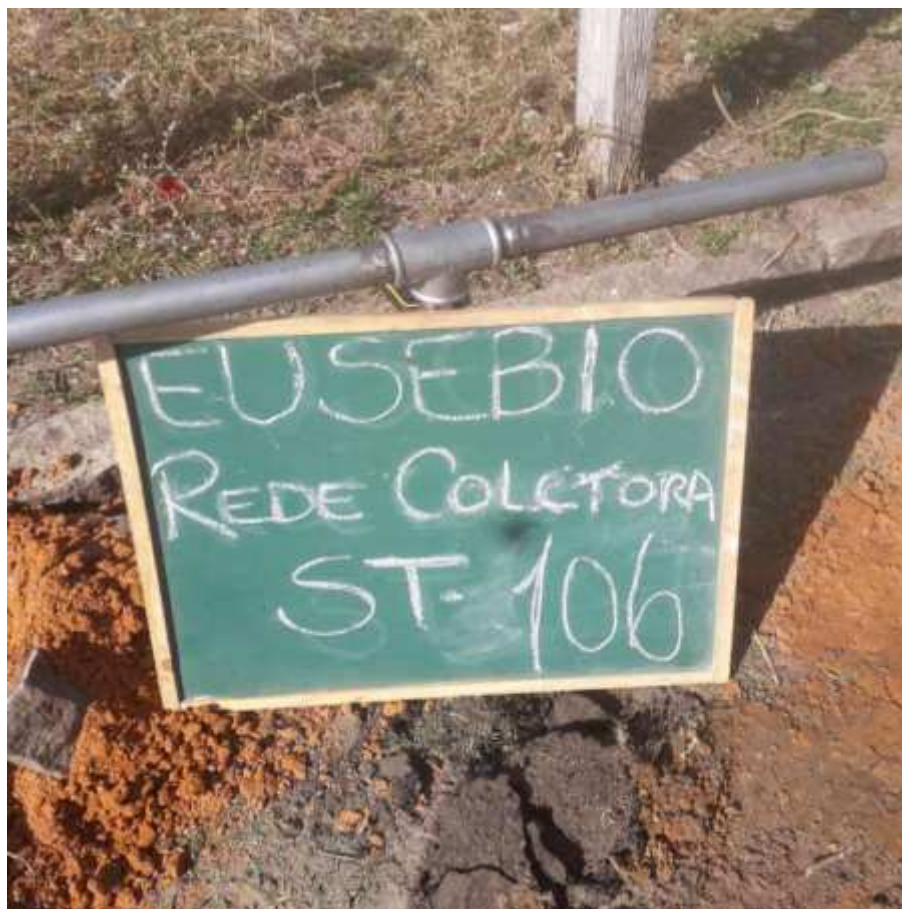 EUSEBIO
REDE COLETORA
ST-106